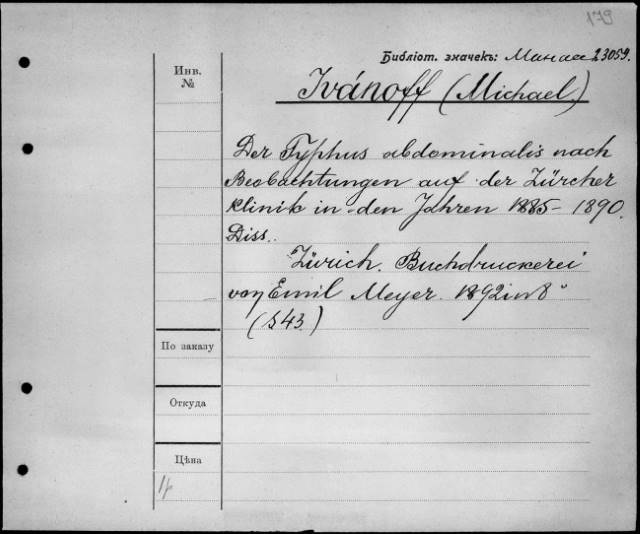 179
Библіот. значекъ: Манасс 23059.
Инв.
№
Ivánoff (Michael.)
Der Typhus abdominalis nach
Beobachtungen auf der Zürcher
Klinik in den Jahren 1885-1890.
Diss.
Zürich. Buchdruckerei
von Emil Meyer. 1892 in 8°
(S 43.)
По заказу
Откуда
Цѣна